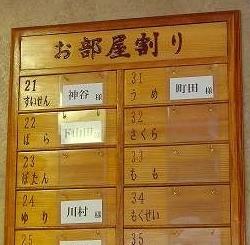 お部屋割り
21
すいせん
神谷 様
31
うめ
町田 様
22
ばら
下山田 様
32
さくら
23
ぼたん
33
もも
24
ゆり
川村 様
34
もくせい
35